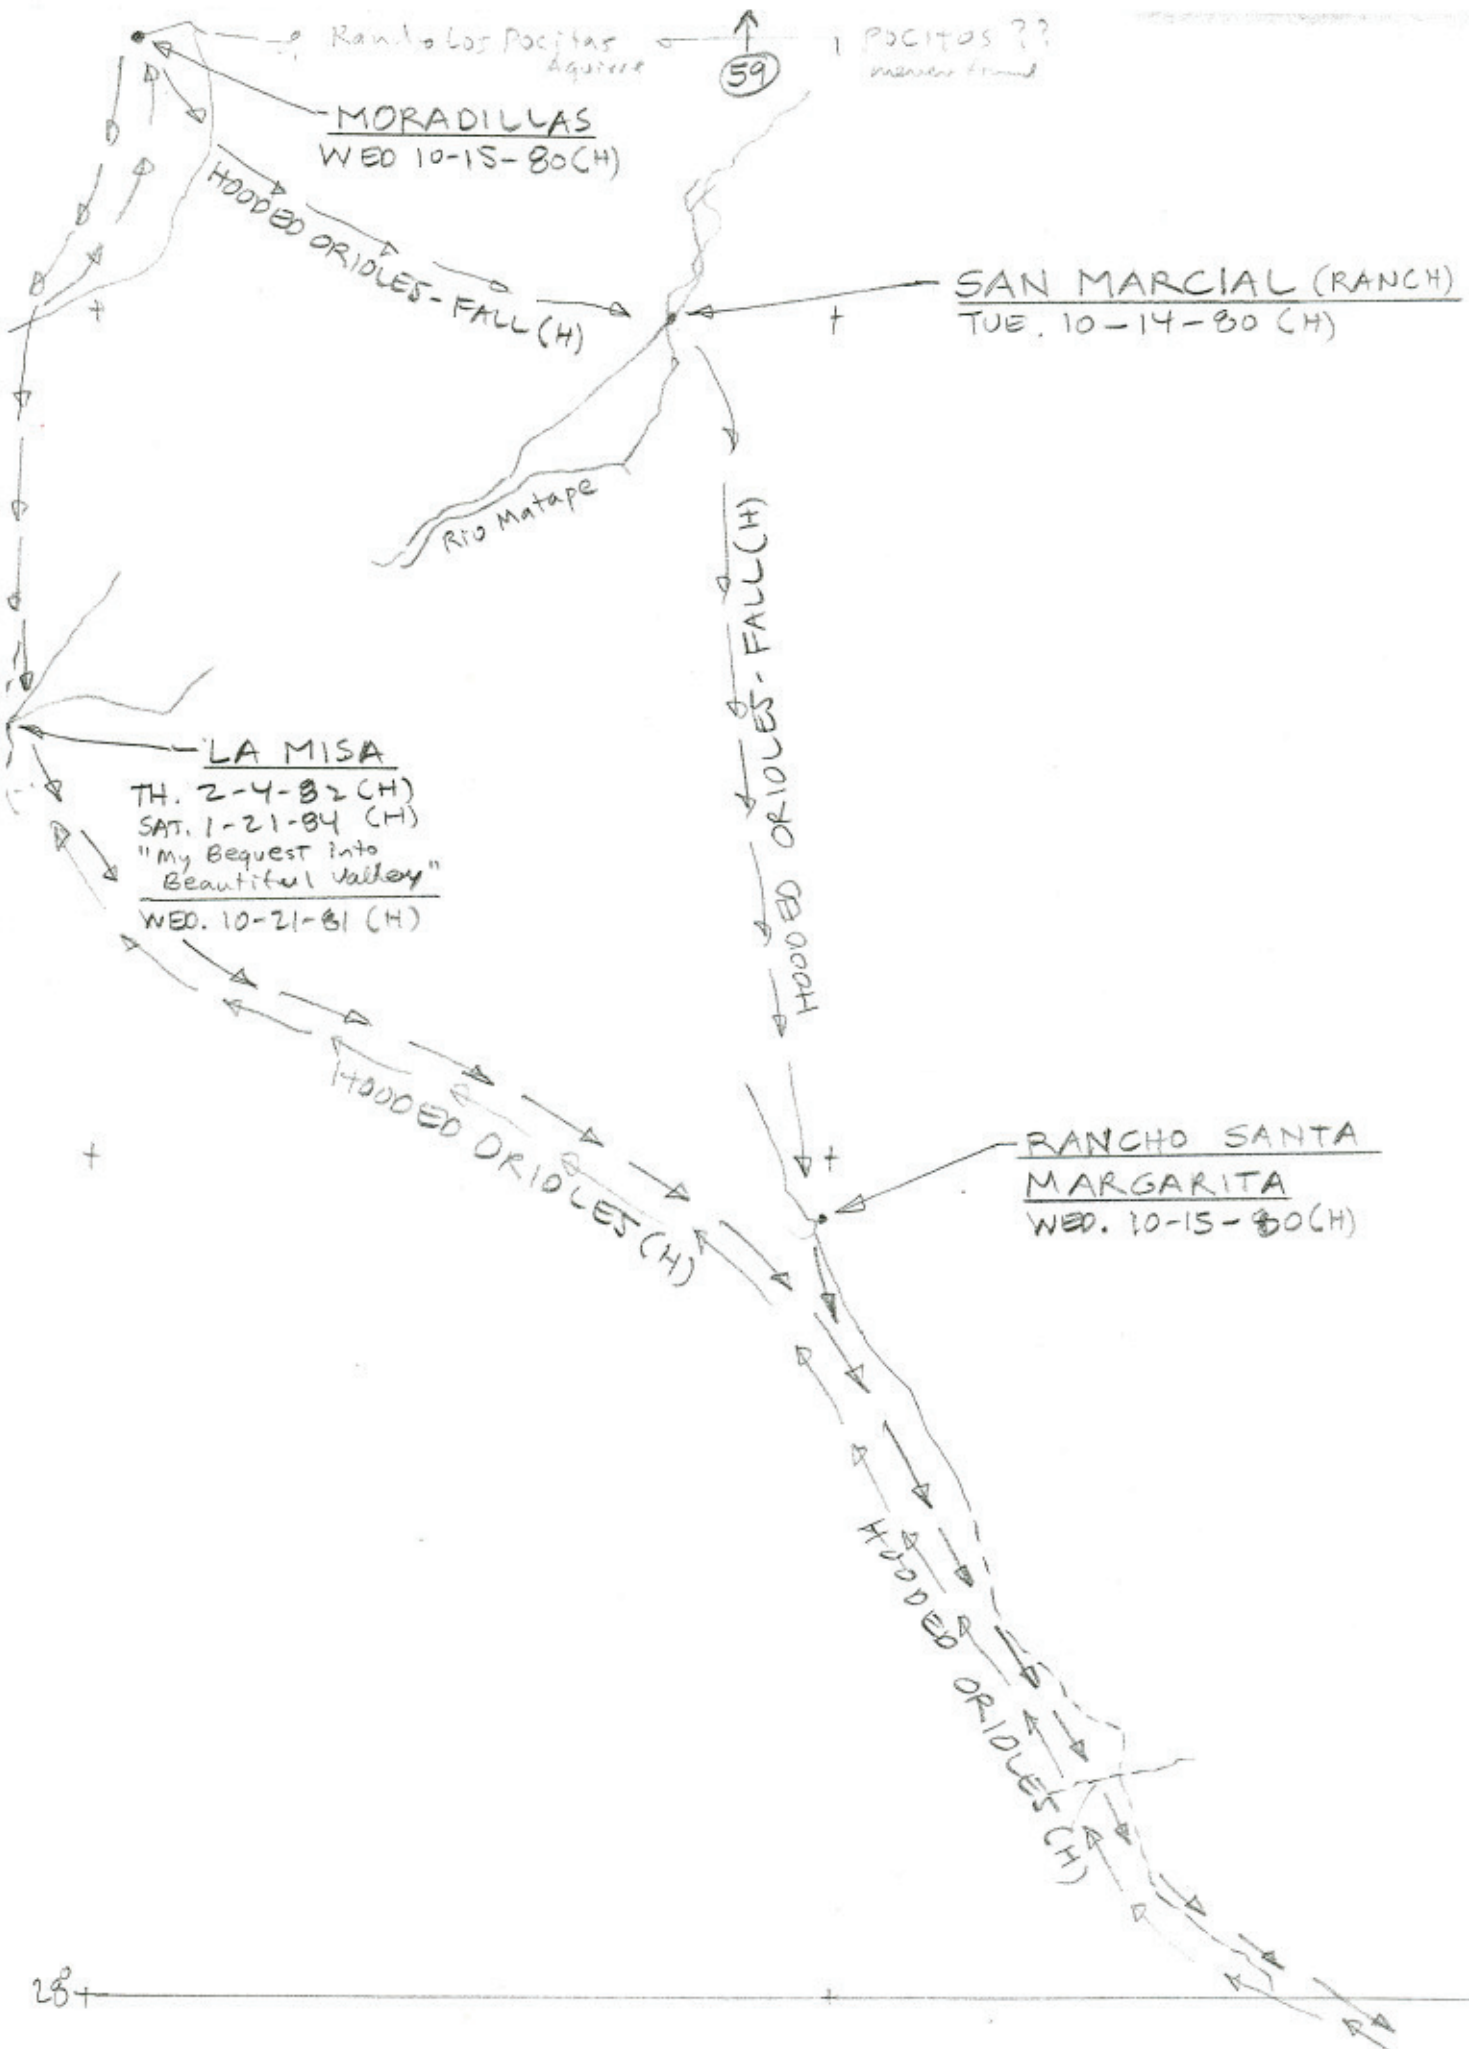 Rancho Los Pocitas
Aguirre
59
POCITOS ??
MORADILLAS
WED 10-15-80(H)
HOODED ORIOLES-FALL(H)
SAN MARCIAL (RANCH)
TUE. 10-14-80 (H)
Rio Matape
HOODED ORIOLES-FALL(H)
LA MISA
TH. 2-4-82(H)
SAT. 1-21-84 (H)
"My Bequest into
Beautiful Valley"
WED. 10-21-81 (H)
HOODED ORIOLES(H)
RANCHO SANTA
MARGARITA
WED. 10-15-80(H)
HOODED ORIOLES(H)
28°